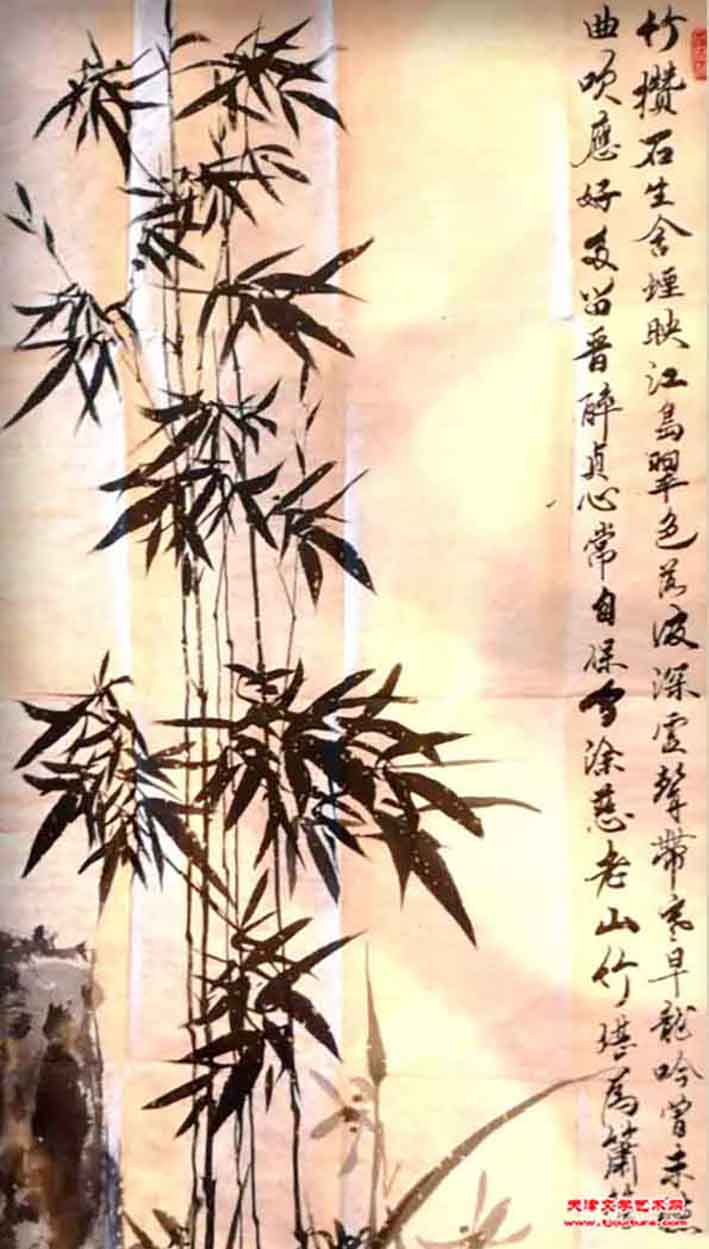 竹攢石生含煙映江島翠色落波深虛聲帶寒早龍吟曾未
曲吹應好多留晉醉貞心常自保當涂慈老山竹堪為簫
天津文学艺术网